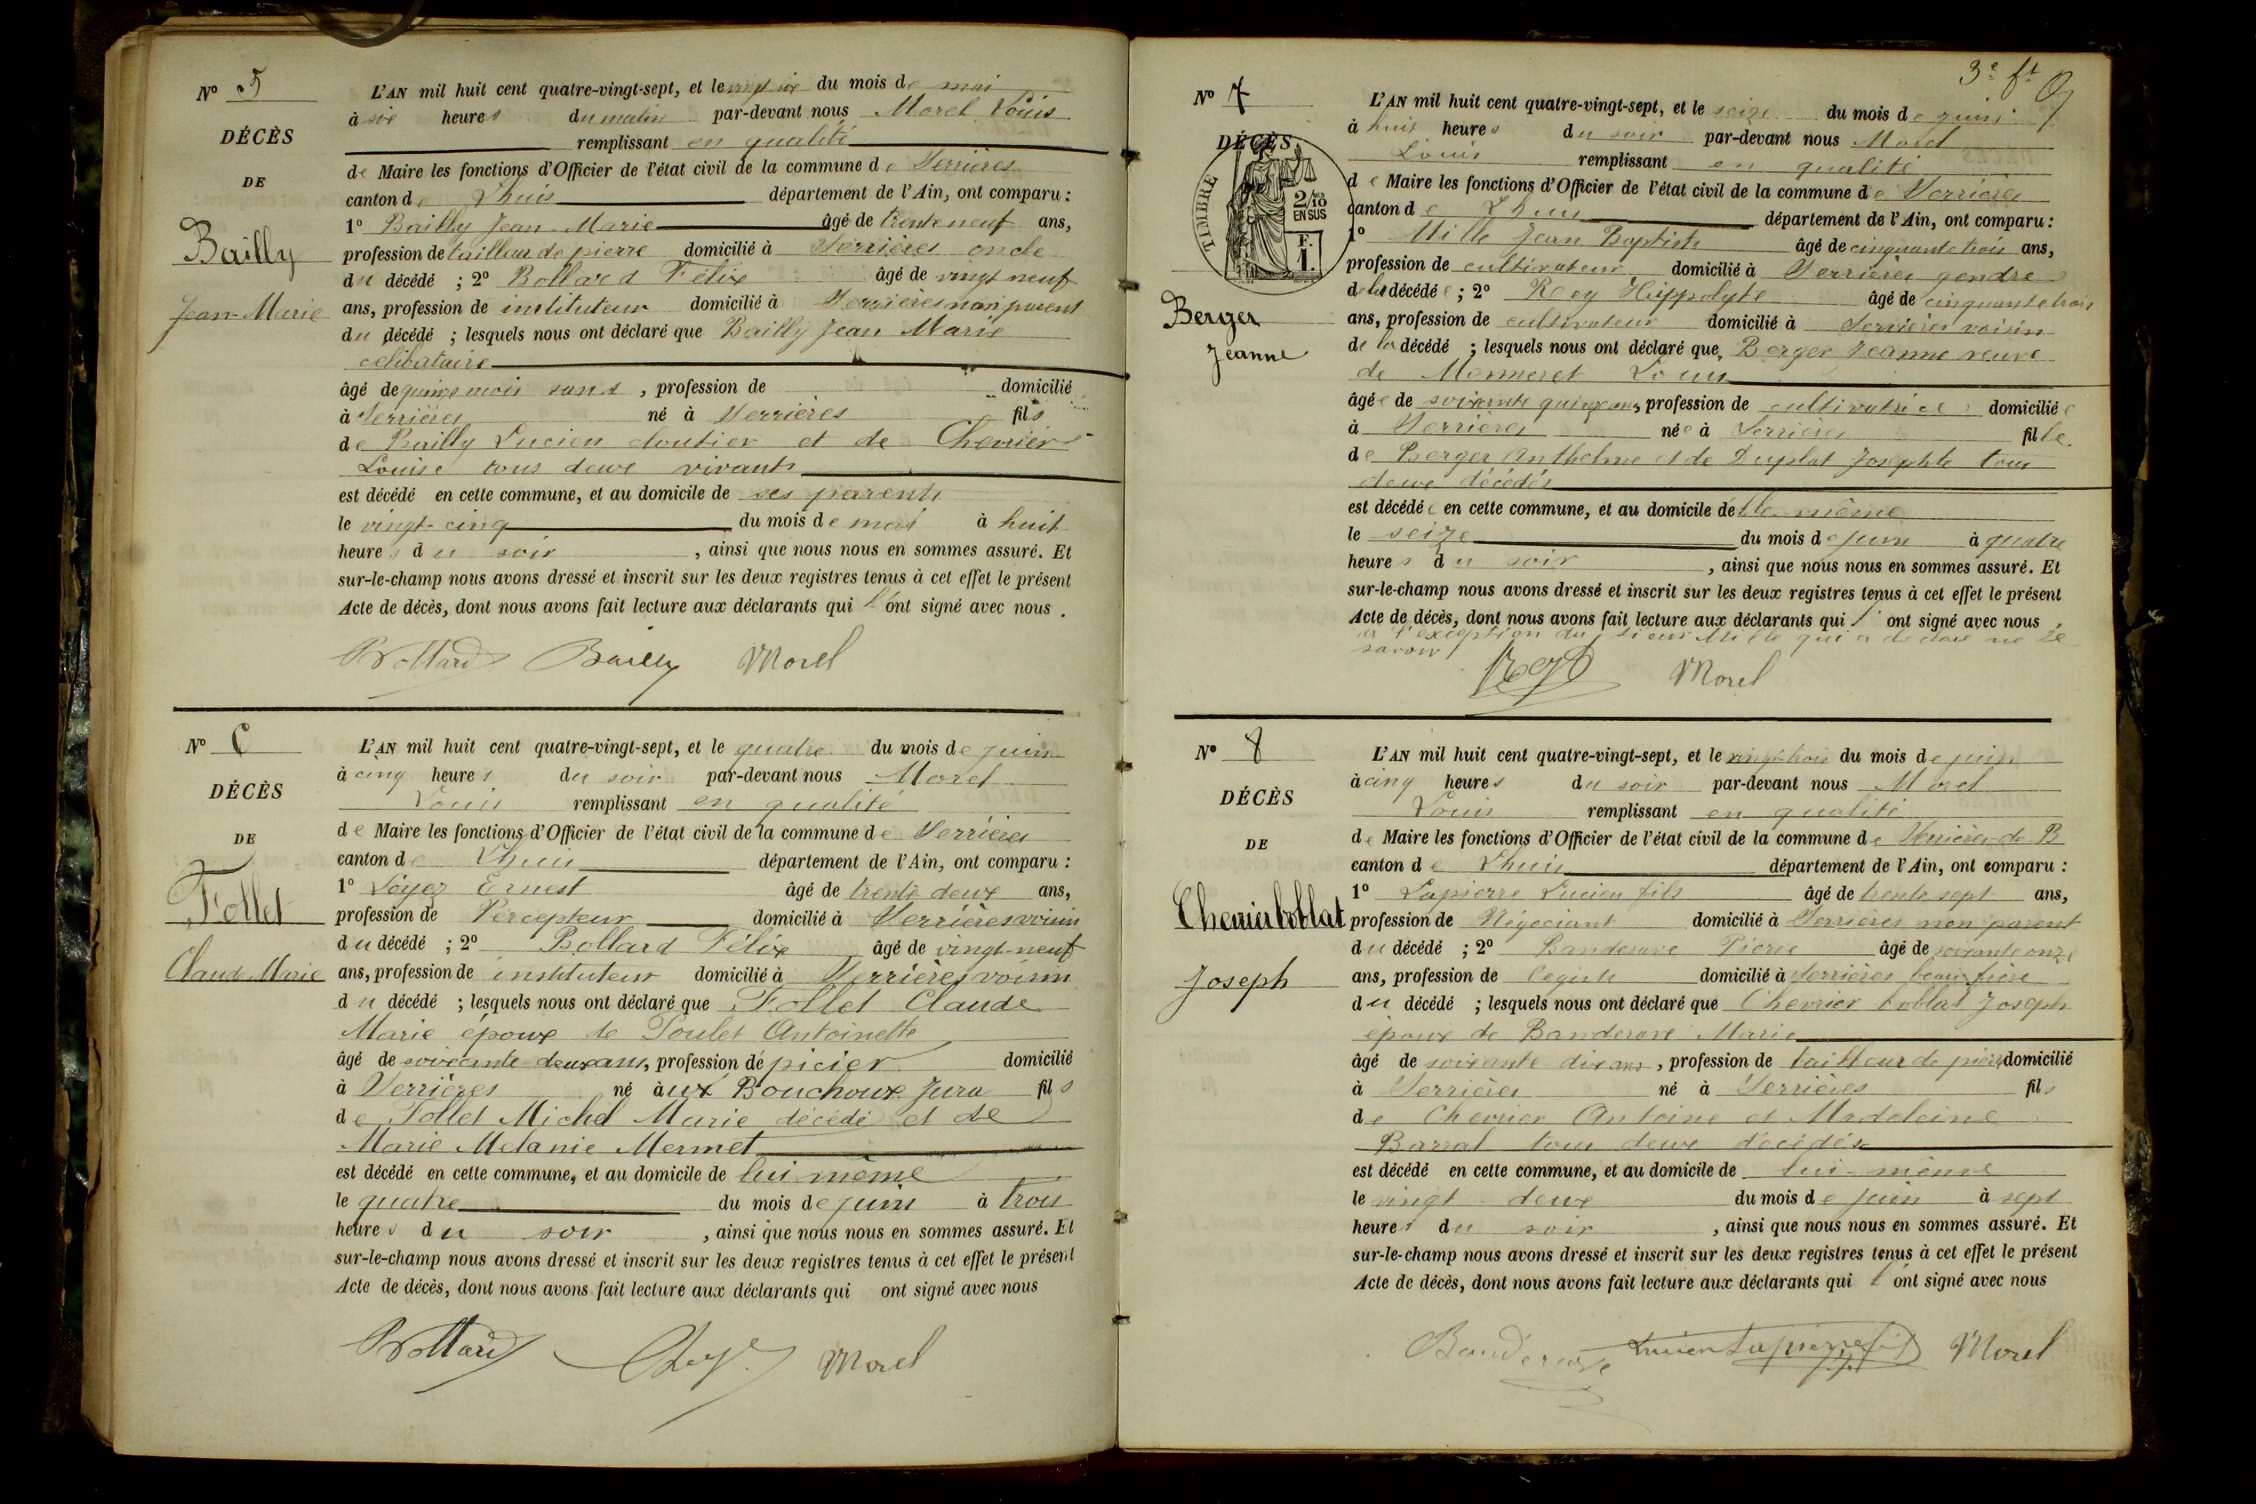 Nº 5
DÉCÈS
DE
Bailly
Jean-Marie
L'AN mil huit cent quatre-vingt-sept, et le vingt six du mois de mai
à six heures du matin par-devant nous Morel Louis
remplissant en qualité
de Maire les fonctions d'Officier de l'état civil de la commune de Serrières
canton de Lhuis département de l'Ain, ont comparu :
1º Bailly Jean-Marie âgé de trente neuf ans,
profession de tailleur de pierre domicilié à Serrières oncle
du décédé ; 2º Bollard Félix âgé de vingt neuf
ans, profession de instituteur domicilié à Serrières non parent
du décédé ; lesquels nous ont déclaré que Bailly Jean Marie
célibataire
âgé de quinze mois sans , profession de domicilié
à Serrières né à Serrières fils
de Bailly Lucien cloutier et de Chevrier
Louise tous deux vivants
est décédé en cette commune, et au domicile de ses parents
le vingt-cinq du mois de mai à huit
heures du soir , ainsi que nous nous en sommes assuré. Et
sur-le-champ nous avons dressé et inscrit sur les deux registres tenus à cet effet le présent
Acte de décès, dont nous avons fait lecture aux déclarants qui l'ont signé avec nous .
Bollard Bailly Morel
Nº 6
DÉCÈS
DE
Follet
Claude Marie
L'AN mil huit cent quatre-vingt-sept, et le quatre du mois de juin
à cinq heures du soir par-devant nous Morel
Louis remplissant en qualité
de Maire les fonctions d'Officier de l'état civil de la commune de Serrières
canton de Lhuis département de l'Ain, ont comparu :
1º Loyez Ernest âgé de trente deux ans,
profession de Percepteur domicilié à Serrières voisin
du décédé ; 2º Bollard Félix âgé de vingt-neuf
ans, profession de instituteur domicilié à Serrières voisin
du décédé ; lesquels nous ont déclaré que Follet Claude
Marie époux de Poulet Antoinette
âgé de soixante deux ans, profession dépicier domicilié
à Serrières né aux Bouchoux Jura fils
de Follet Michel Marie décédé et de
Marie Melanie Mermet
est décédé en cette commune, et au domicile de lui même
le quatre du mois de juin à trois
heures du soir , ainsi que nous nous en sommes assuré. Et
sur-le-champ nous avons dressé et inscrit sur les deux registres tenus à cet effet le présent
Acte de décès, dont nous avons fait lecture aux déclarants qui ont signé avec nous
Bollard Morel
3e ft
Nº 7
DÉCÈS
TIMBRE
2/10
EN SUS
F.
1.
Berger
Jeanne
L'AN mil huit cent quatre-vingt-sept, et le seize du mois de juin
à huit heures du soir par-devant nous Morel
Louis remplissant en qualité
de Maire les fonctions d'Officier de l'état civil de la commune de Serrières
canton de Lhuis département de l'Ain, ont comparu :
1º Mille Jean Baptiste âgé de cinquante trois ans,
profession de cultivateur domicilié à Serrières gendre
de la décédée ; 2º Rey Hippolyte âgé de cinquante trois
ans, profession de cultivateur domicilié à Serrières voisin
de la décédé ; lesquels nous ont déclaré que Berger Jeanne veuve
de Monneret Louis
âgée de soixante quinze ans, profession de cultivatrice domiciliée
à Serrières née à Serrières fille
de Berger Anthelme et de Duplat Josephte tous
deux décédés
est décédée en cette commune, et au domicile d'elle même
le seize du mois de juin à quatre
heures du soir , ainsi que nous nous en sommes assuré. Et
sur-le-champ nous avons dressé et inscrit sur les deux registres tenus à cet effet le présent
Acte de décès, dont nous avons fait lecture aux déclarants qui l'ont signé avec nous ,
à l'exception du sieur Mille qui a déclaré ne le
savoir
Rey Morel
Nº 8
DÉCÈS
DE
Chevrier boblat
Joseph
L'AN mil huit cent quatre-vingt-sept, et le vingt trois du mois de juin
à cinq heures du soir par-devant nous Morel
Louis remplissant en qualité
de Maire les fonctions d'Officier de l'état civil de la commune de Serrières de B
canton de Lhuis département de l'Ain, ont comparu :
1º Lapierre Lucien fils âgé de trente sept ans,
profession de Négociant domicilié à Serrières non parent
du décédé ; 2º Banderave Pierre âgé de soixante onze
ans, profession de légiste domicilié à Serrières beau frère
du décédé ; lesquels nous ont déclaré que Chevrier boblat Joseph
époux de Banderave Marie
âgé de soixante dix ans , profession de tailleur de pierre domicilié
à Serrières né à Serrières fils
de Chevrier Antoine et Madeleine
Barrat tous deux décédés
est décédé en cette commune, et au domicile de lui-même
le vingt-deux du mois de juin à sept
heures du soir , ainsi que nous nous en sommes assuré. Et
sur-le-champ nous avons dressé et inscrit sur les deux registres tenus à cet effet le présent
Acte de décès, dont nous avons fait lecture aux déclarants qui l'ont signé avec nous
Banderave Lucien Lapierre fils Morel